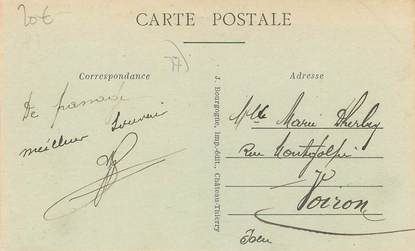 20€
CARTE POSTALE
77
Correspondance
Adresse
De passage
meilleur souvenir
J. Bourgogne, imp.-édit., Château-Thierry
Mlle Marie
Rue Montgolfier
Voiron
Isère